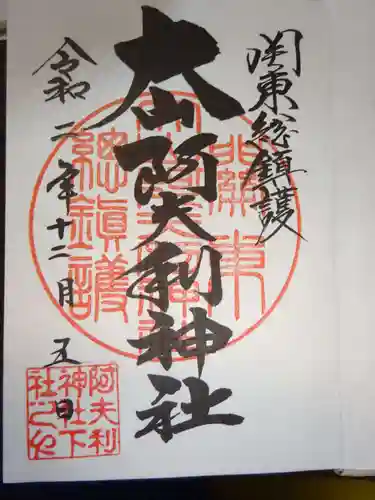 関東総鎮護
大山阿夫利神社
令和二年十二月五日
關東
總鎮護
阿夫利
神社下
社之印